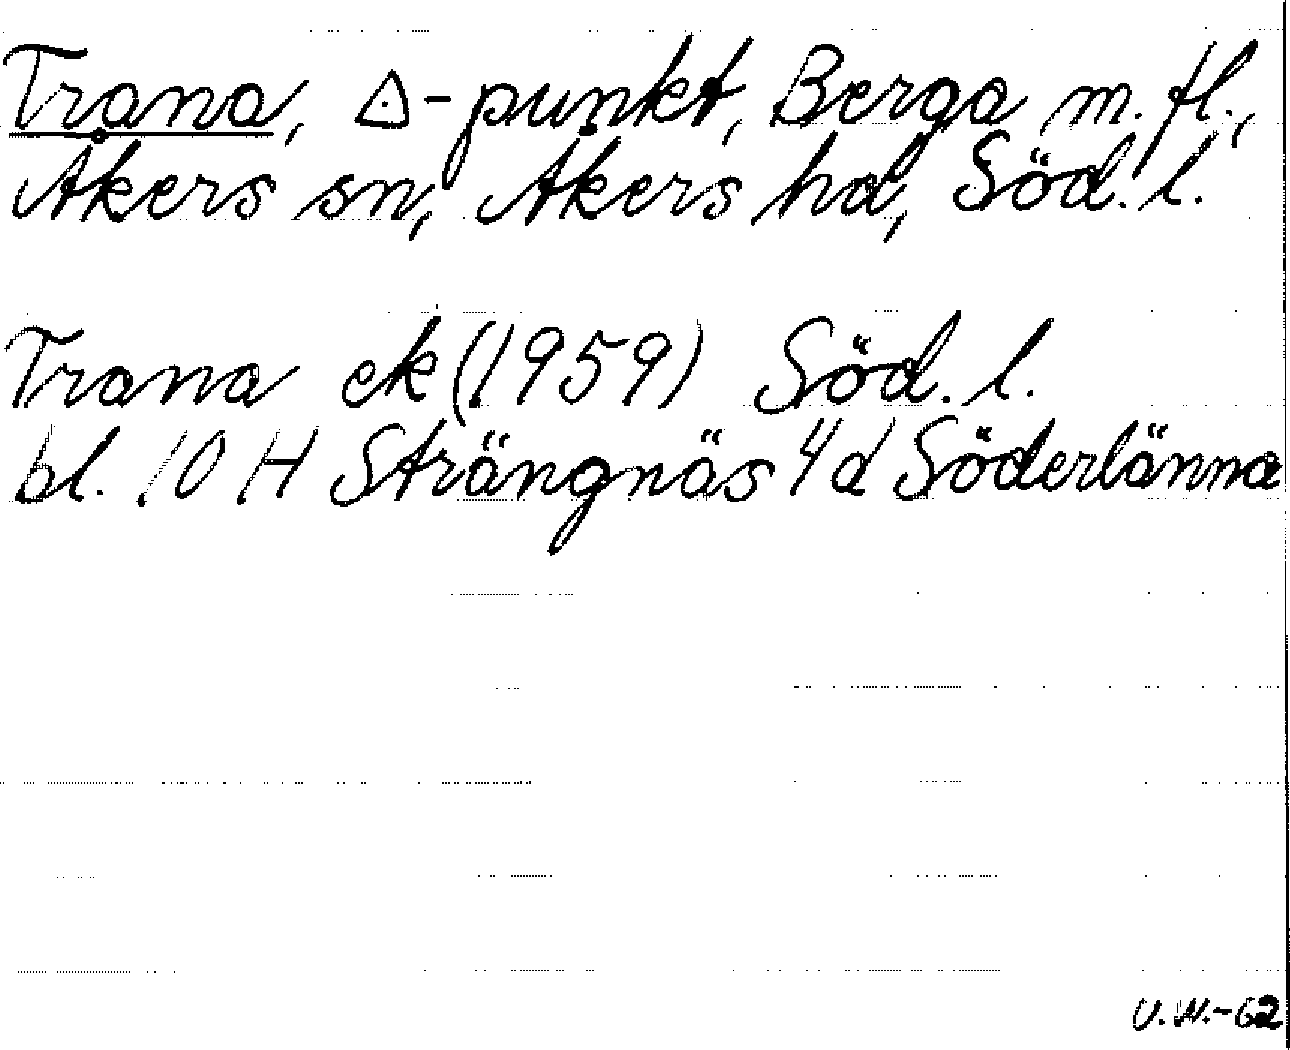 Trana, △-punkt, Berga m.fl.,
Åkers sn, Åkers hd, Söd. l.
Trana ek (1959) Söd. l.
bl. 10 H Strängnäs 4d Söderlänna
U.W.-62